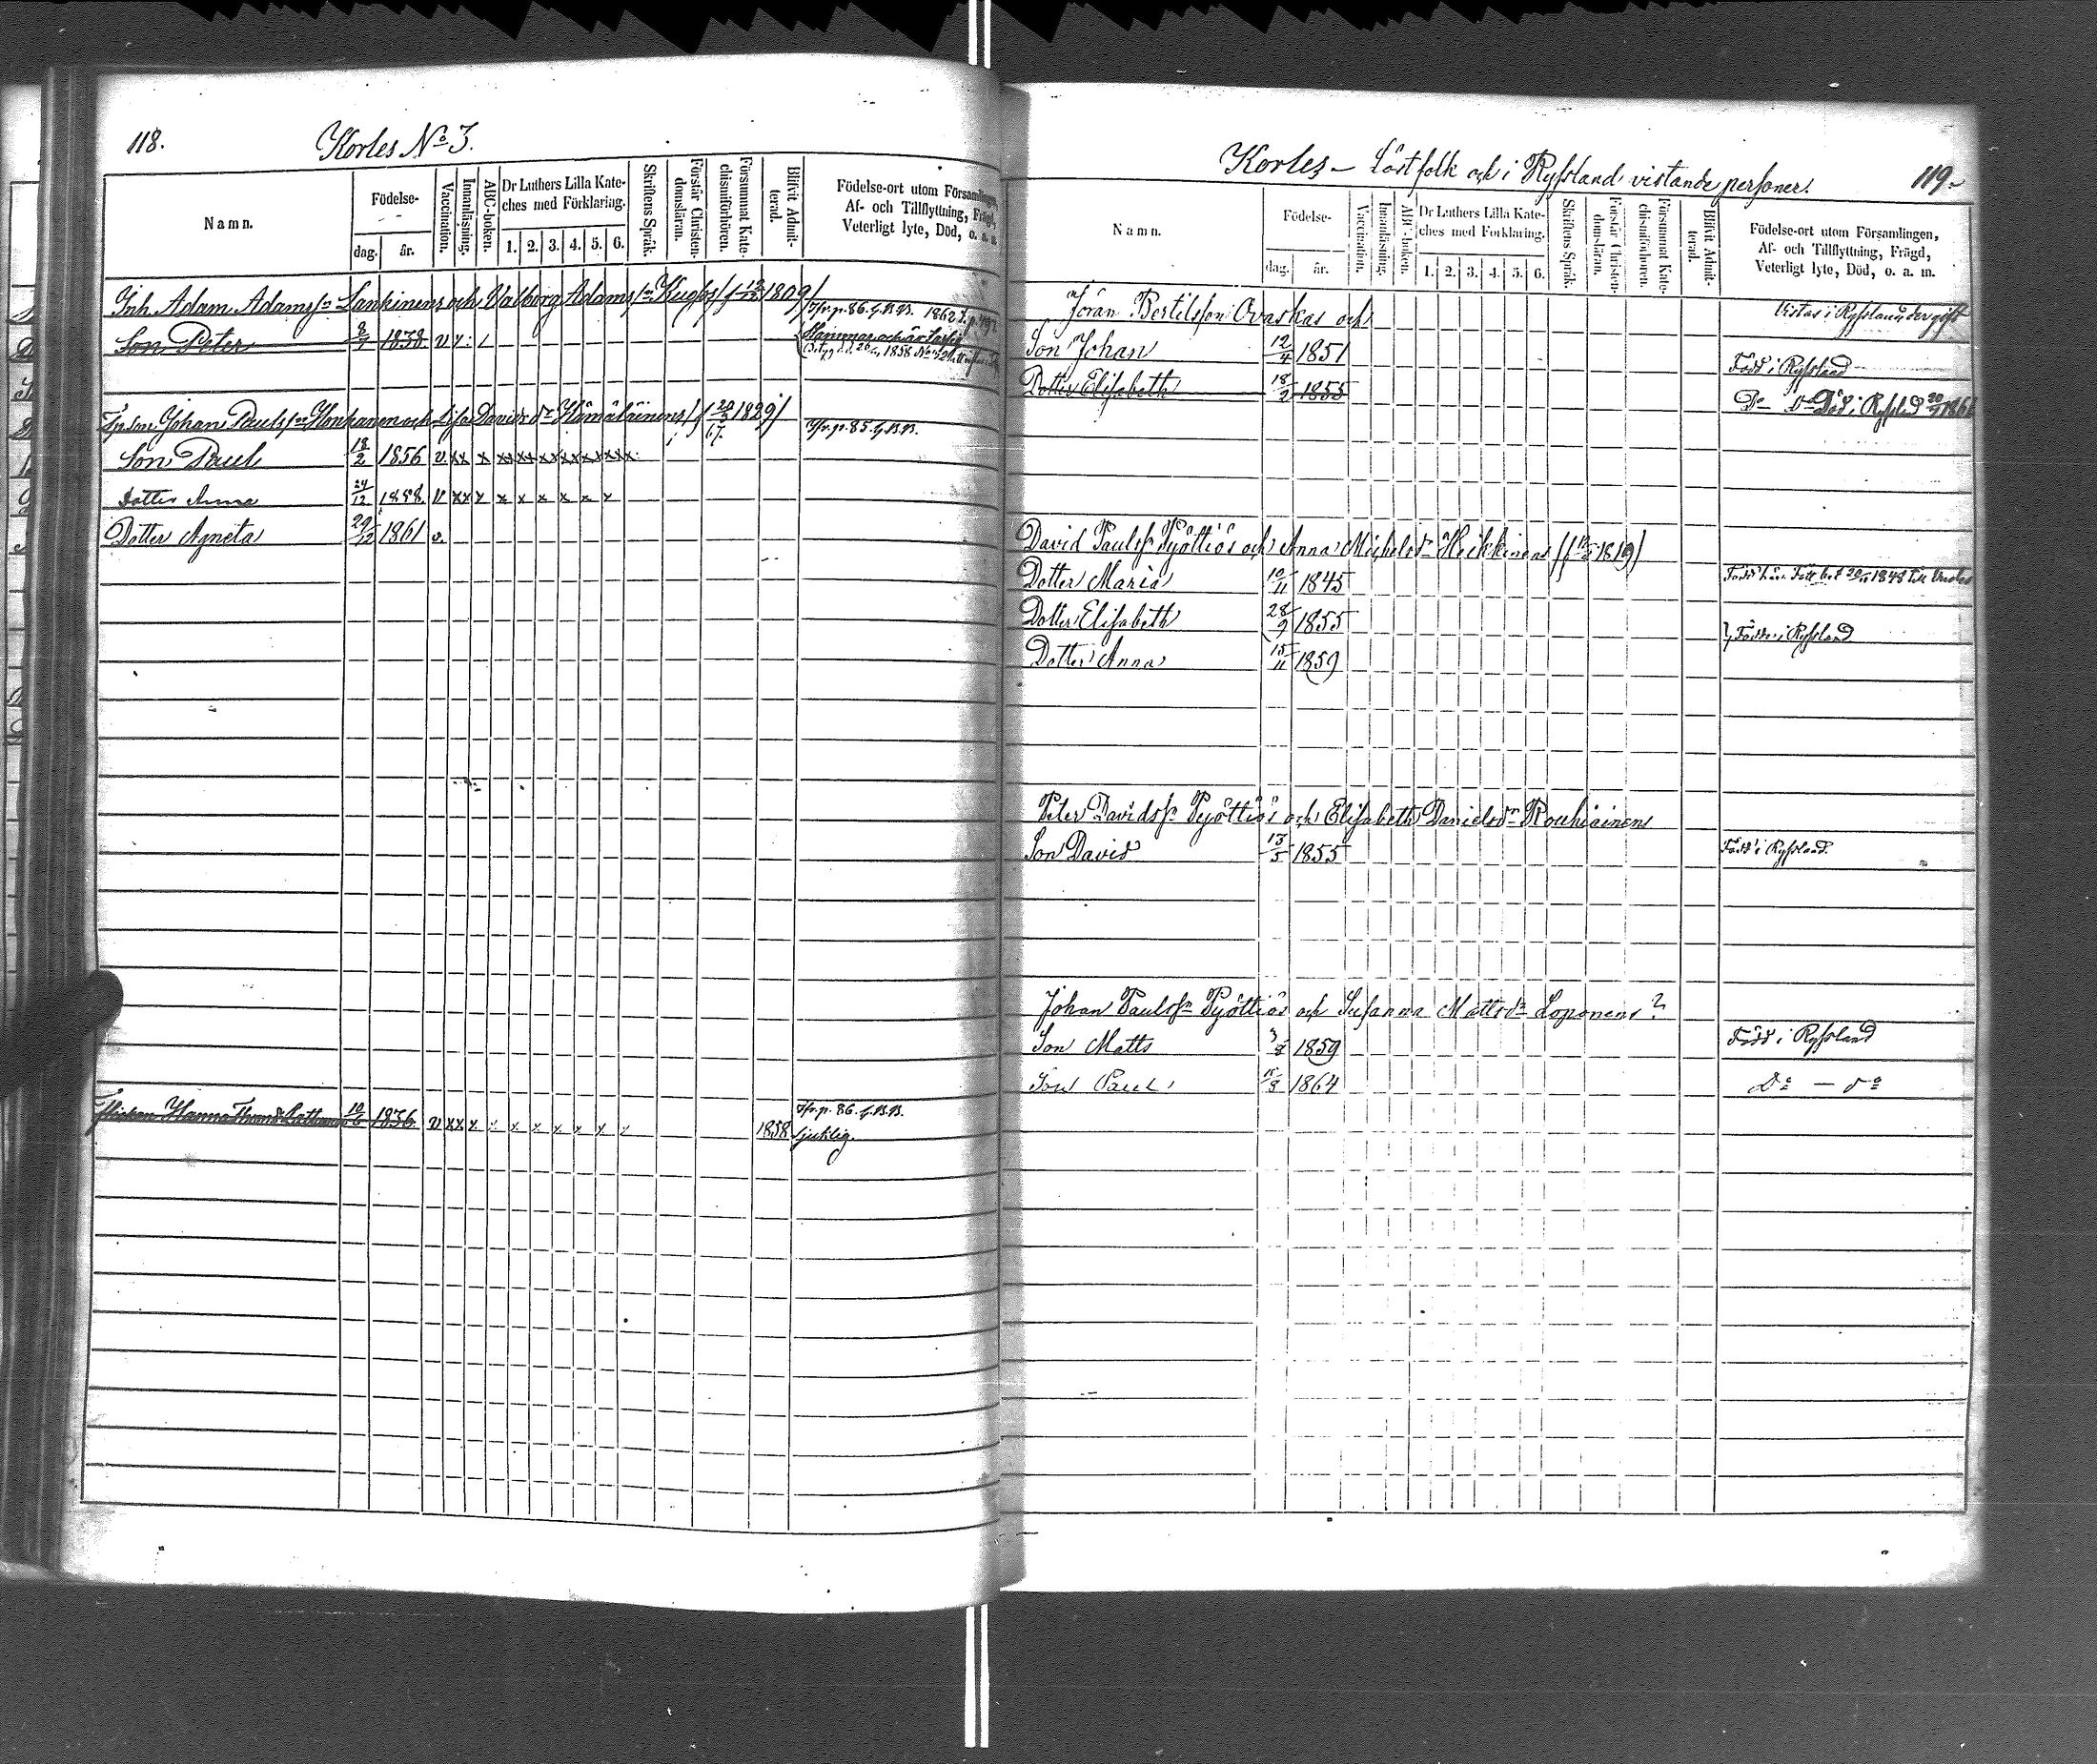 118.
Korles No 3.
Namn.
Födelse-
dag.
år.
Vaccination.
Innanläsning.
ABC-boken.
Dr Luthers Lilla Kate-
ches med Förklaring.
1. 2. 3. 4. 5. 6.
Skriftens Språk.
Förstår Christen-
domsläran.
Försummat Kate-
chismiförhören.
Blifvit Admit-
terad.
Födelse-ort utom Församlingen,
Af- och Tillflyttning, Frägd,
Veterligt lyte, Död, o. a. m.
Inh. Adam Adamsſn Lankinen och Valborg Adams 1809
Tfr. p. 86. g. B.B. 1862
Son Peter 8/7 1838 v
1858
Johan Paulsſn Honkanen och Lisa Davidsdr Hämäläinen 1829
67.
Tfr. p. 85. g. B.B.
Son Paul 18/2 1856 v xx x xx xx xx xx xx xxx
Dotter Anna 24/12 1858 v xx x x x x x x x
Dotter Agneta 29/12 1861 v.
Flickan Hanna 10/6 1836 v xx x x x x x x x 1858
Tfr. p. 86. g. B.B.
sjuklig.
Korles – Löstfolk och i Ryssland vistande personer.
119.
Namn.
Födelse-
dag.
år.
Vaccination.
Innanläsning.
ABC-boken.
Dr Luthers Lilla Kate-
ches med Förklaring.
1. 2. 3. 4. 5. 6.
Skriftens Språk.
Förstår Christen-
domsläran.
Försummat Kate-
chismiförhören.
Blifvit Admit-
terad.
Födelse-ort utom Församlingen,
Af- och Tillflyttning, Frägd,
Veterligt lyte, Död, o. a. m.
Jöran Bertilsson Ovaskas och
Vistas i Ryssland der gift
Son Johan 12/4 1851 Född i Ryssland
Dotter Elisabeth 18/2 1855 Do Do Död i Ryssland
David Paulsſn Pyöttiäs och Anna Michelsdr Heikkinens 1819
Dotter Maria 10/11 1845 1848 till
Dotter Elisabeth 28/9 1855 } Födde i Ryssland
Dotter Anna 15/11 1859
Peter Davidsſn Pyöttiäs och Elisabeth Danielsdr Rouhiainens
Son David 13/5 1855 Född i Ryssland.
Johan Paulsſn Pyöttiäs och Susanna Mattsdr Loponens?
Son Matts 1859 Född i Ryssland
Son Paul 15/8 1864 Do – do